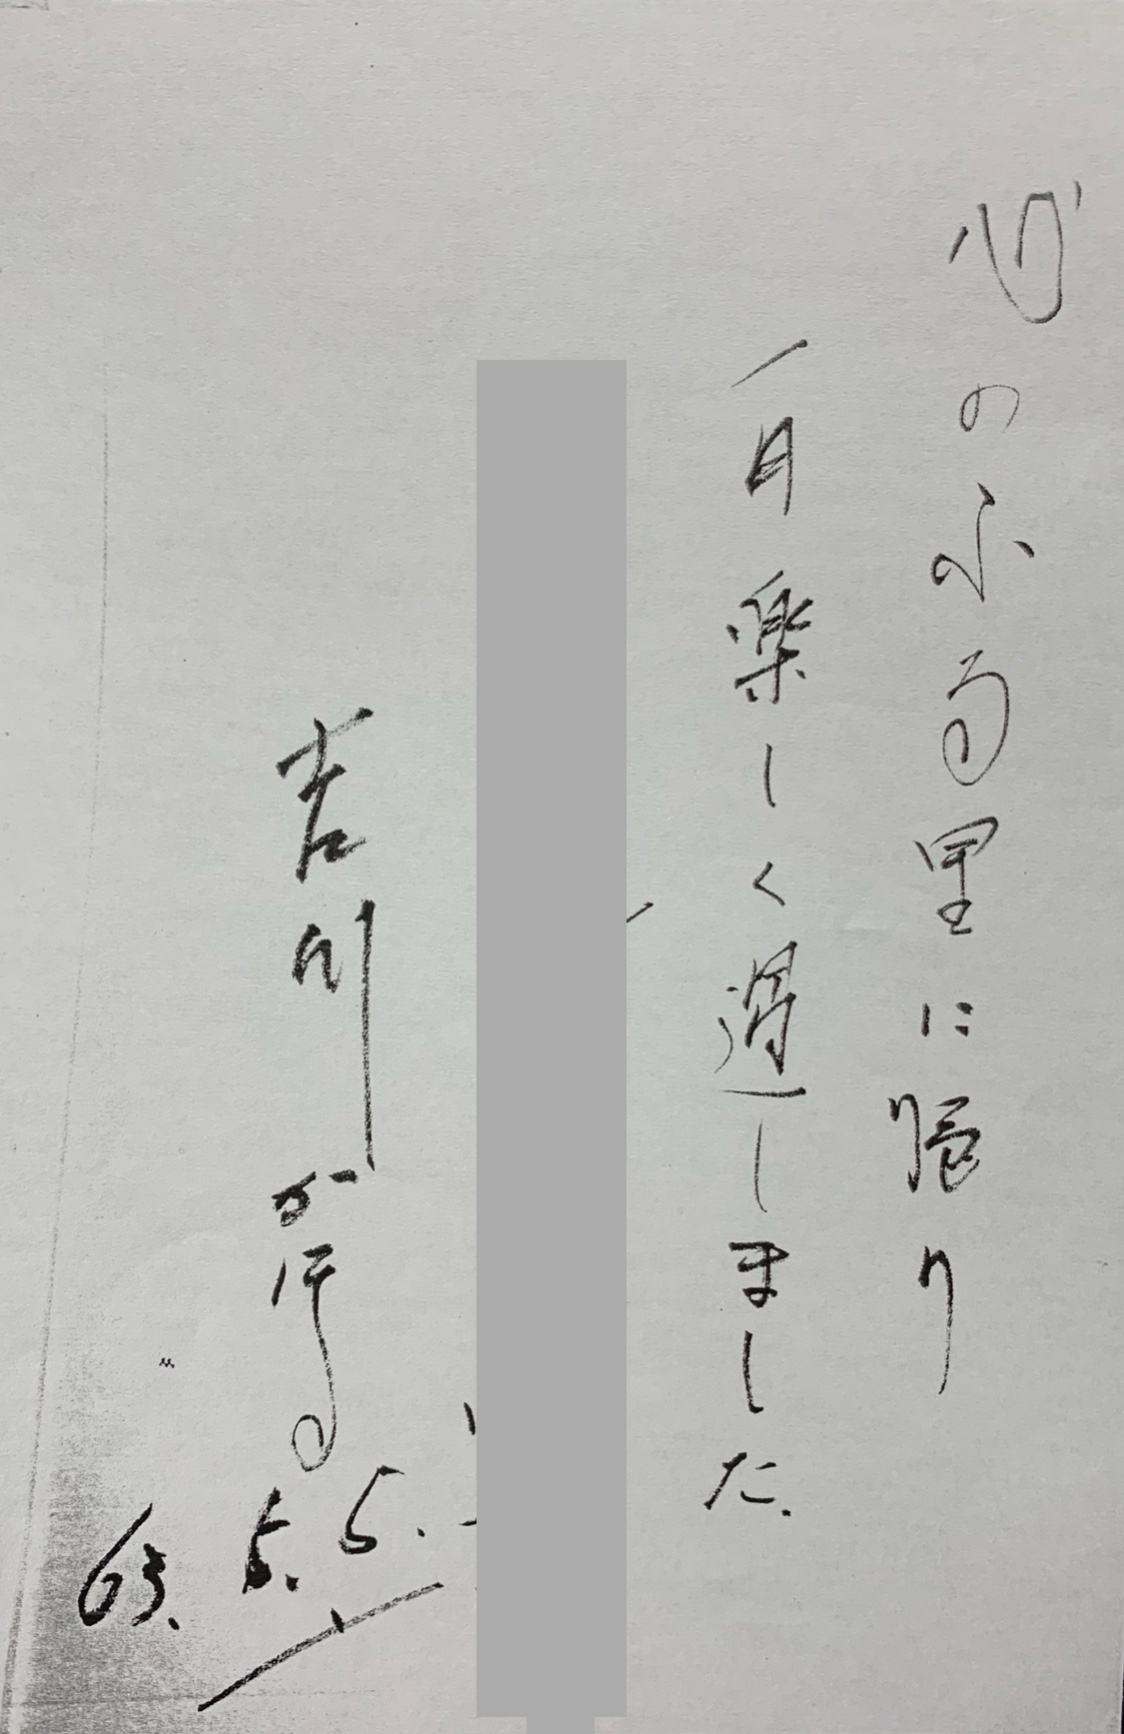 心のふる里に帰り
一日楽しく過しました.
吉川
63. 5. 5.